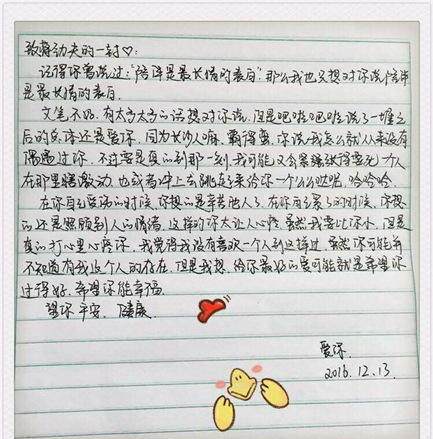 致蒋劲夫的一封♡:
记得你曾说过:"陪伴是最长情的表白"那么我也只想对你说,陪伴
是最长情的表白.
文笔不好.有太多太多的话想对你说,但是吧啦吧啦说了一堆之
后的后续还是爱你,同为长沙人嘛.霸得蛮,你说我怎么就从来没有
偶遇过你.不过要是真的到那一刻.我可能又会紧张得要死一个人
在那里瞎激动.也或者冲上去跳起来给你一个么么哒呢,哈哈哈.
在你自己受伤的时候,你想的是拿其他人了.在你自己累了的时候,你想
的还是照顾别人的情绪.这样的你太让人心疼.虽然我要比你小.但是
真的打心里心疼你.我觉得我没有喜欢一个人到这样过.虽然你可能并
不知道有我这个人的存在.但是我想.给你最好的爱可能就是希望你
过得好.希望你能幸福.
望你平安.健康
爱你.
2016.12.13.